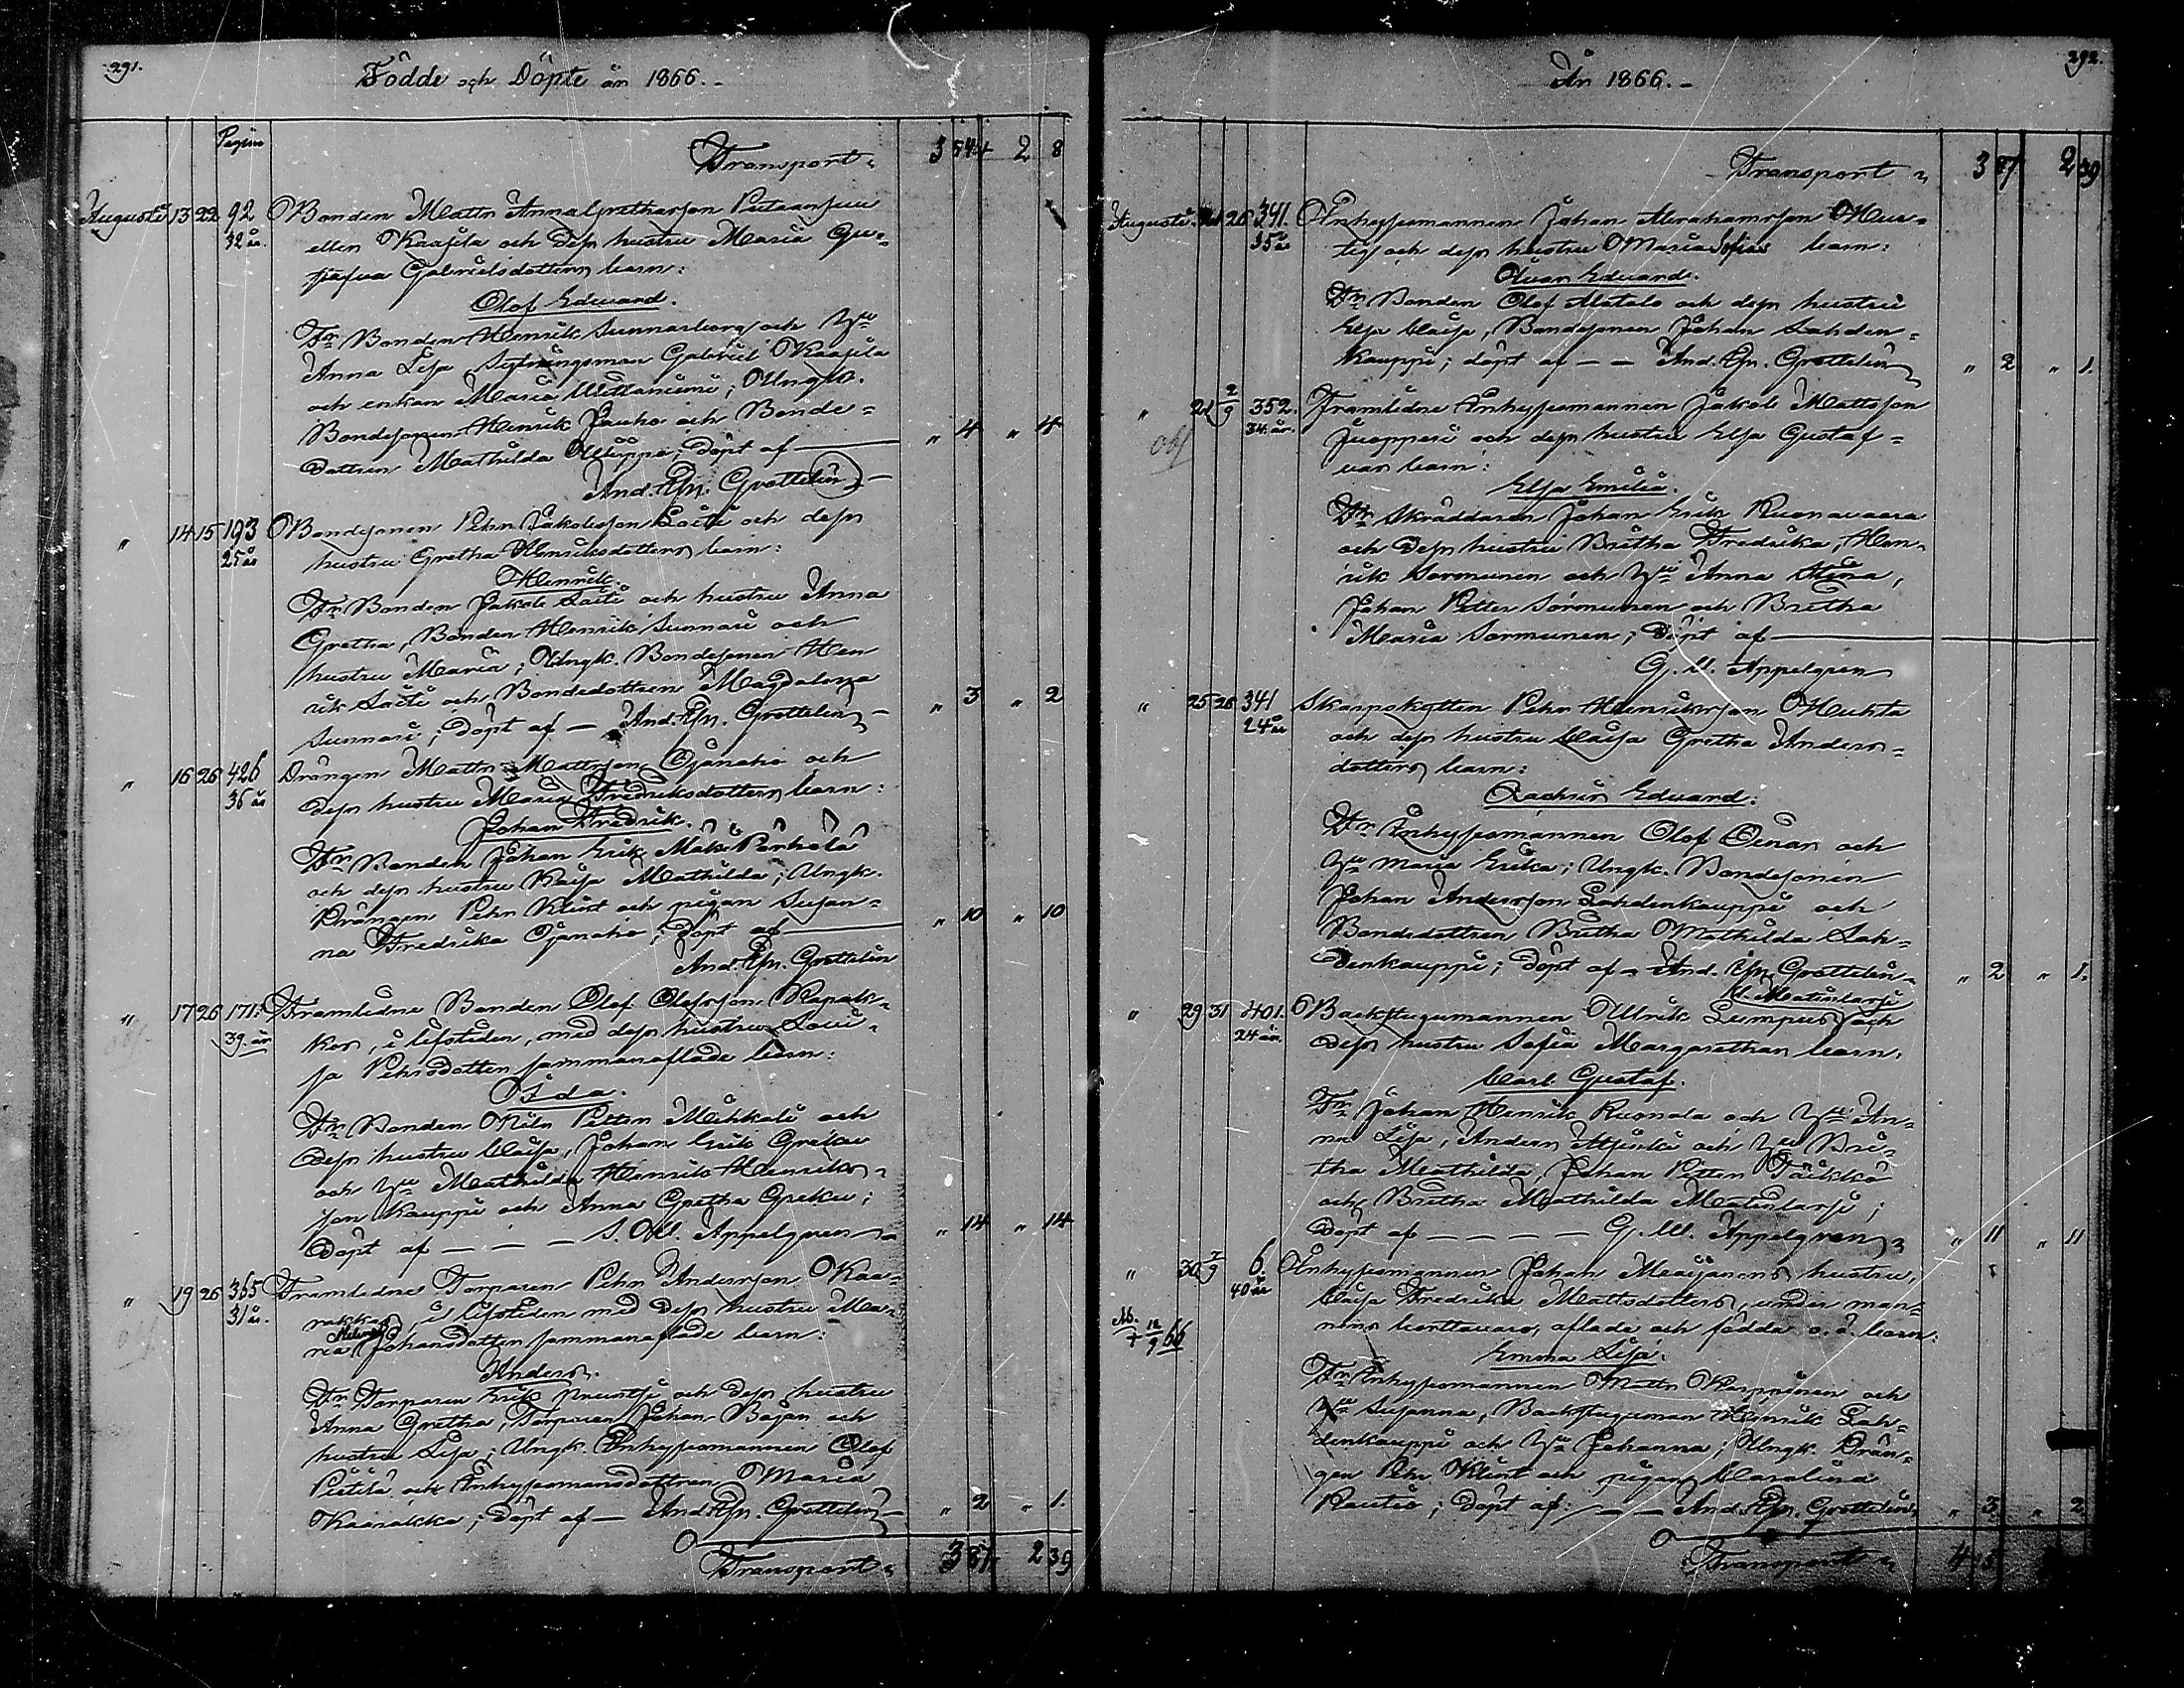 291.
Födde och Döpte år 1866.
Pagina
Transport
3 54 2 8
Augusti 13 22 92 Bonden Matts Annagrethasson
32 år. eller Kaafila och dess hustru Maria Gu-
Gabrielsdotters barn:
Olof Eduard.
Fr Bonden Henrik Sunnarborg och Hu
Anna Lisa Gabriel Kaafila
och enkan Maria ; Ungk.
Bondesonen Henrik Jauho och Bonde-
dottren Mathilda ; döpt af
And. Joh. Grottelin
" 4 " 4
" 14 15 193 Bondesonen Pehr Jakobsson Laiti och dess
25 år hustru Gretha Henriksdotters barn:
Henrik.
Fr Bonden Jakob Laiti och hustru Anna
Gretha, Bonden Henrik Sunnari och
hustru Maria; Ungk. Bondesonen Hen
rik Laiti och Bondedottren Magdalena
Sunnari; döpt af — And. Joh. Grottelin
" 3 " 2
" 16 26 426 Drängen Matts Mattsson Ojanaho och
36 år dess hustru Maria Fredriksdotters barn:
Johan Fredrik.
Fr Bonden Johan Erik Mäki Perhälä
och dess hustru Kaisa Mathilda; Ungk.
Drängen Pehr Klint och pigan Susan-
na Fredrika Ojanaho; döpt af
And. Joh. Grottelin
" 10 " 10
" 17 26 171. Framledne Bonden Olof Olofsson Rapak-
39. år kos, i lifstiden, med dess hustru Loui-
sa Pehrsdotter sammanaflade barn:
Ida.
Fr Bonden Nils Petter Mikkali och
dess hustru Caisa, Johan Erik Greku
och Hu Mathilda, Henrik Henriks-
son Kauppi och Anna Gretha Greku;
döpt af — — — Appelgren
" 14 " 14
" 19 26 365 Framledne Torparen Pehr Andersson Kaa-
31 år. rakkas, i lifstiden med dess hustru Ma-
ria Johansdotter sammanaflade barn:
Anders.
Fr Torparen Erik och dess hustru
Anna Gretha, Torparen Johan Bajan och
hustru Lisa; Ungk. Inhysesmannen Olof
Pietilä och Inhysesmansdottren Maria
Kaarakka; döpt af — And. Joh. Grottelin
" 2 " 1.
Transport
3 87 2 39
År 1866.
292.
Transport
3 87 2 39
Augusti. 21 26 341. Inhysesmannen Johan Abrahamsson
35 år och dess hustru Maria Sofias barn:
Oscar Eduard.
Fr Bonden Olof Alatalo och dess hustru
Elsa Caisa, Bondesonen Johan Lahden-
kauppi; döpt af — — And. Joh. Grottelin
" 2 " 1.
" 21 2/9 352. Framledne Inhysesmannen Jakob Mattsson
34. år. Juopperi och dess hustru Elsa Gustaf-
vas barn:
Elsa Emilia.
Fr Skräddaren Johan Erik Ruonavaara
och dess hustru Britha Fredrika, Hen-
rik Sormunen och Hu Anna Stina,
Johan Petter Sormunen och Britha
Maria Sormunen; döpt af
G. M. Appelgren
" 25 26 341 Skarpskytten Pehr Henriksson Huhta
24 år och dess hustru Caisa Gretha Anders-
dotters barn:
Zachris Eduard.
Fr Inhysesmannen Olof Oinas och
Hu Maria Erika; Ungk. Bondesonen
Johan Andersson Lahdenkauppi och
Bondedottren Britha Mathilda Lah-
denkauppi; döpt af — And. Joh. Grottelin
" 2 " 1.
Matinlassi
" 29 31 401. Backstugumannen Ulrik Lumpus och
24 år. dess hustru Sofia Margarethas barn:
Carl Gustaf.
Fr Johan Henrik Ruonala och Hu An-
na Lisa, Anders och Hu Bri-
tha Mathilda, Johan Petter Täikkö
och Britha Mathilda Matinlassi;
döpt af — — — — G. M. Appelgren
" 11 " 11
" 30 2/9 6. Inhysesmannen Johan Maijanens hustru,
40 år Caisa Fredrika Mattsdotters, under man-
nens borttavaro, aflade och födda o. ä. barn:
† 12/9 66
Emma Lisa.
Fr Inhysesmannen Matts Karppinen och
Hu Susanna, Backstuguman Henrik Lah-
denkauppi och Hu Johanna; Ungk. Drän-
gen Pehr Klint och pigan Carolina
Rautio; döpt af — — And. Joh. Grottelin
" 3 " 2
Transport
4 15